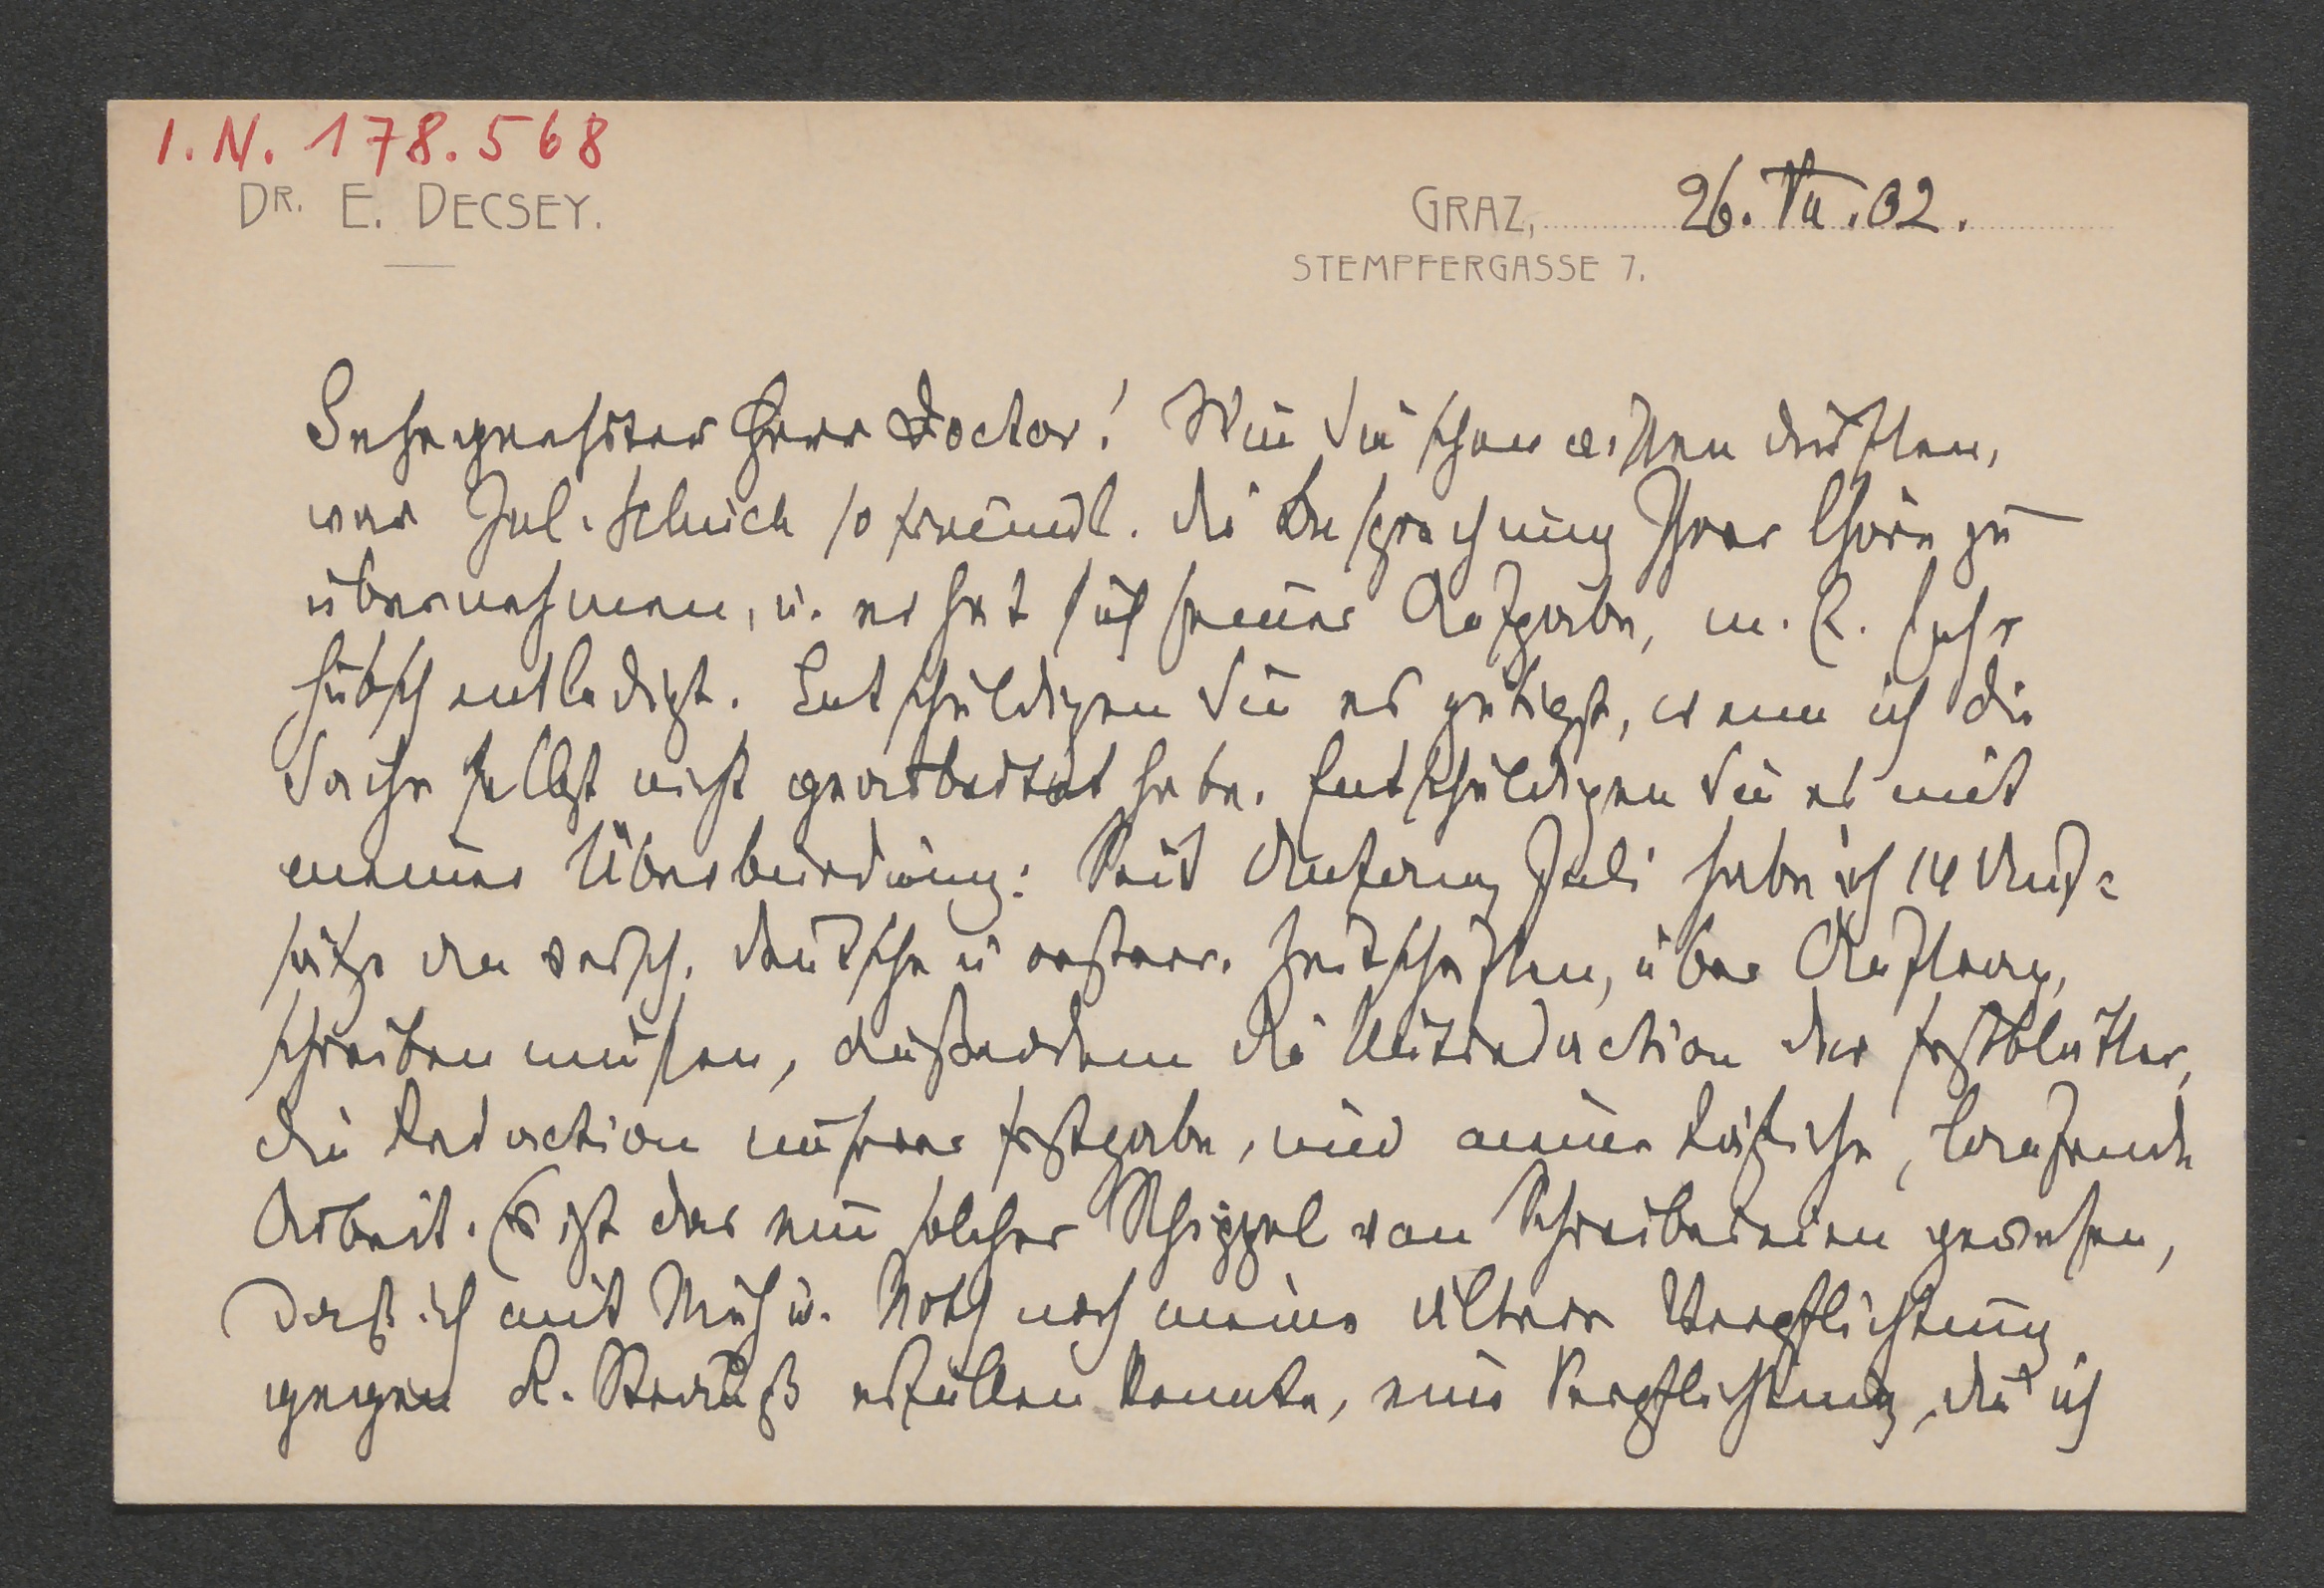 I. N. 178.568
DR. E. DECSEY.
GRAZ, 26. VII. 02.
STEMPFERGASSE 7.
Sehrgeehrter Herr Doctor! Wie Sie schon wissen dürften,
war Jul. Schuch so freundl. die Besprechung Ihrer Chöre zu
übernehmen, u. er hat sich seiner Aufgabe, m. E. sehr
hübsch entledigt. Entschuldigen Sie es gütigst, wenn ich die
Sache selbst nicht gearbeitet habe. Entschuldigen Sie es mit
meiner Überbürdung: Seit Anfang Juli habe ich 14 Auf-
sätze an versch. deutsche u oesterr. Zeitschriften, über Auftrag,
schreiben müssen, außerdem die Mitredaction der Festblätter,
die Redaction unserer Festgabe, und meine tägliche, laufende
Arbeit. Es ist das ein solcher Schippel von Schreibereien gewesen,
daß ich mit Müh u. Noth noch meine ältere Verpflichtung
gegen R. Strauß erfüllen konnte, eine Verpflichtung, die ich